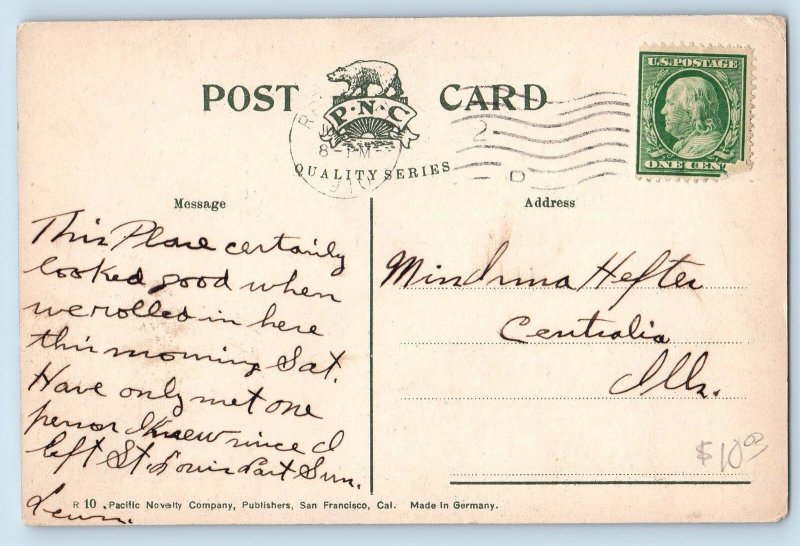 POST CARD
P·N·C
QUALITY SERIES
U.S. POSTAGE
ONE CENT
8-PM
1910
2
D
Message
Address
This Place certainly
looked good when
we rolled in here
this morning Sat.
Have only met one
person I knew since I
left St. Louis Last Sun.
Lewn.
Hefter
Centralia
Ills.
$10.00
R 10. Pacific Novelty Company, Publishers, San Francisco, Cal. Made in Germany.